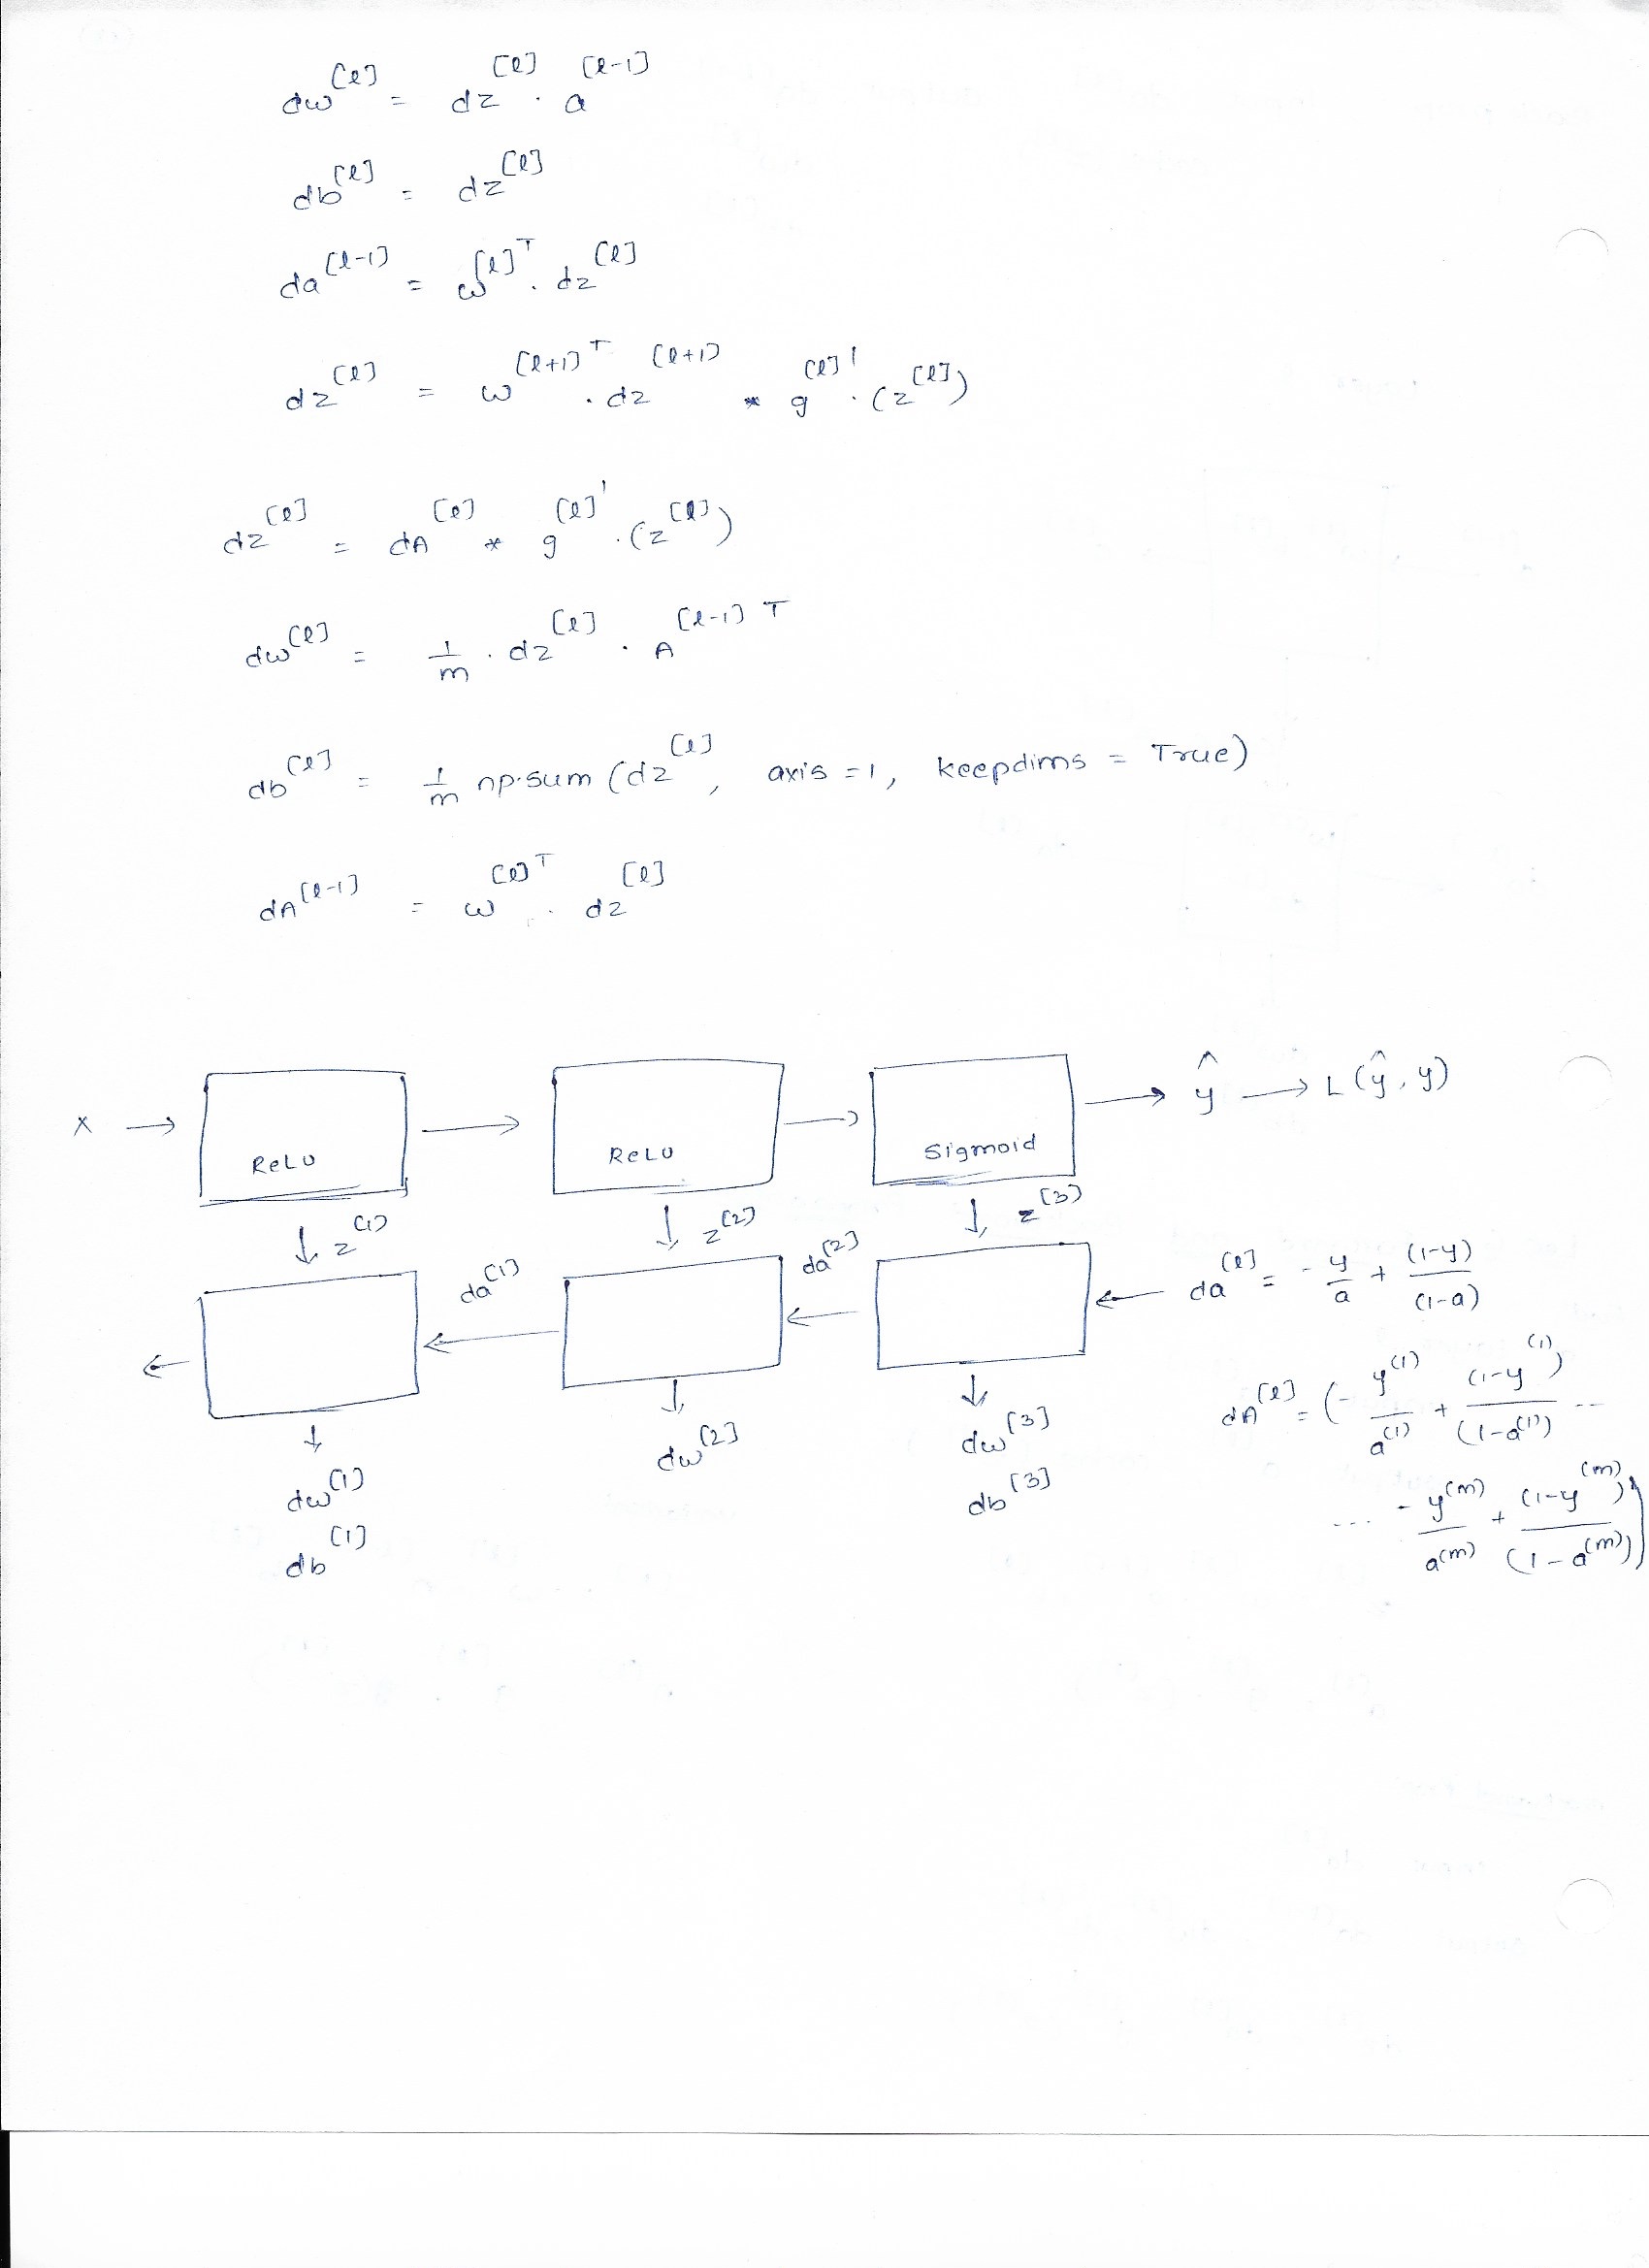 dw^[l] = dz^[l] . a^[l-1]
db^[l] = dz^[l]
da^[l-1] = w^[l]T . dz^[l]
dz^[l] = w^[l+1]T . dz^[l+1] * g^[l]' . (z^[l])
dz^[l] = dA^[l] * g^[l]' . (z^[l])
dw^[l] = 1/m . dz^[l] . A^[l-1]T
db^[l] = 1/m np.sum (dz^[l], axis = 1, keepdims = True)
dA^[l-1] = w^[l]T . dz^[l]
x → ReLU → ReLU → Sigmoid → ŷ → L(ŷ, y)
↓ z^[1] ↓ z^[2] ↓ z^[3]
← da^[1] ← da^[2] ← da^[l] = - y/a + (1-y)/(1-a)
↓ ↓ ↓
dw^[1] dw^[2] dw^[3]
db^[1] db^[3]
dA^[l] = (- y^(1)/a^(1) + (1-y^(1))/(1-a^(1)) ...
... - y^(m)/a^(m) + (1-y^(m))/(1-a^(m)))